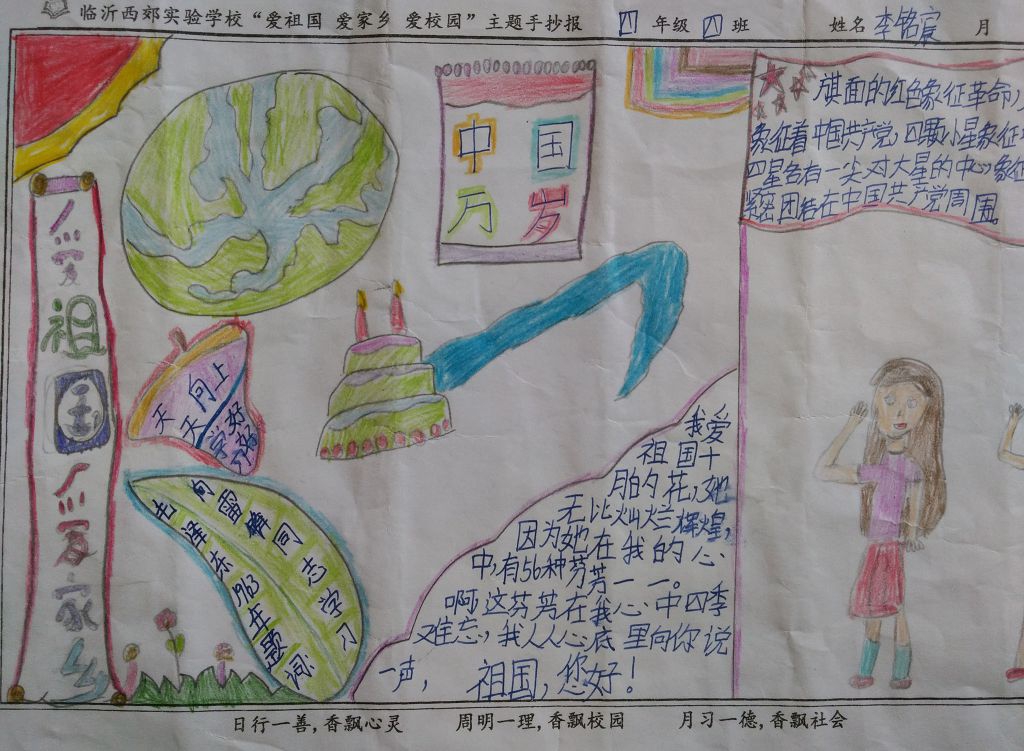 临沂西郊实验学校“爱祖国 爱家乡 爱校园”主题手抄报 四 年级 四 班 姓名 李铭宸 月
爱祖国爱家乡
中国
万岁
天天向上
好好学习
向雷锋同志学习
毛泽东1963年题词
旗面的红色象征革命,
象征着中国共产党,四颗小星象征
四星各有一尖对大星的中心,象征
紧密团结在中国共产党周围。
我爱
祖国十
月的花,她
无比灿烂辉煌,
因为她在我的心
中,有56种芬芳一一。
啊,这芬芳在我心中四季
难忘,我从心底里向你说
一声,祖国,您好!
日行一善,香飘心灵 周明一理,香飘校园 月习一德,香飘社会